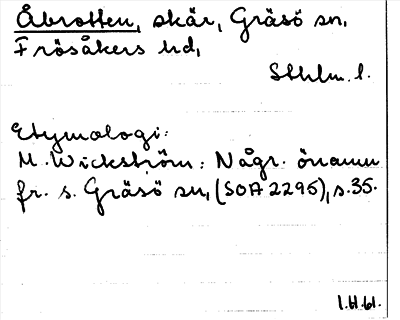 Åbrotten, skär, Gräsö sn,
Frösåkers hd,
Sthlm. l.
Etymologi:
M. Wickström: Någr. önamn
fr. s. Gräsö sn, (SOA 2295), s. 35.